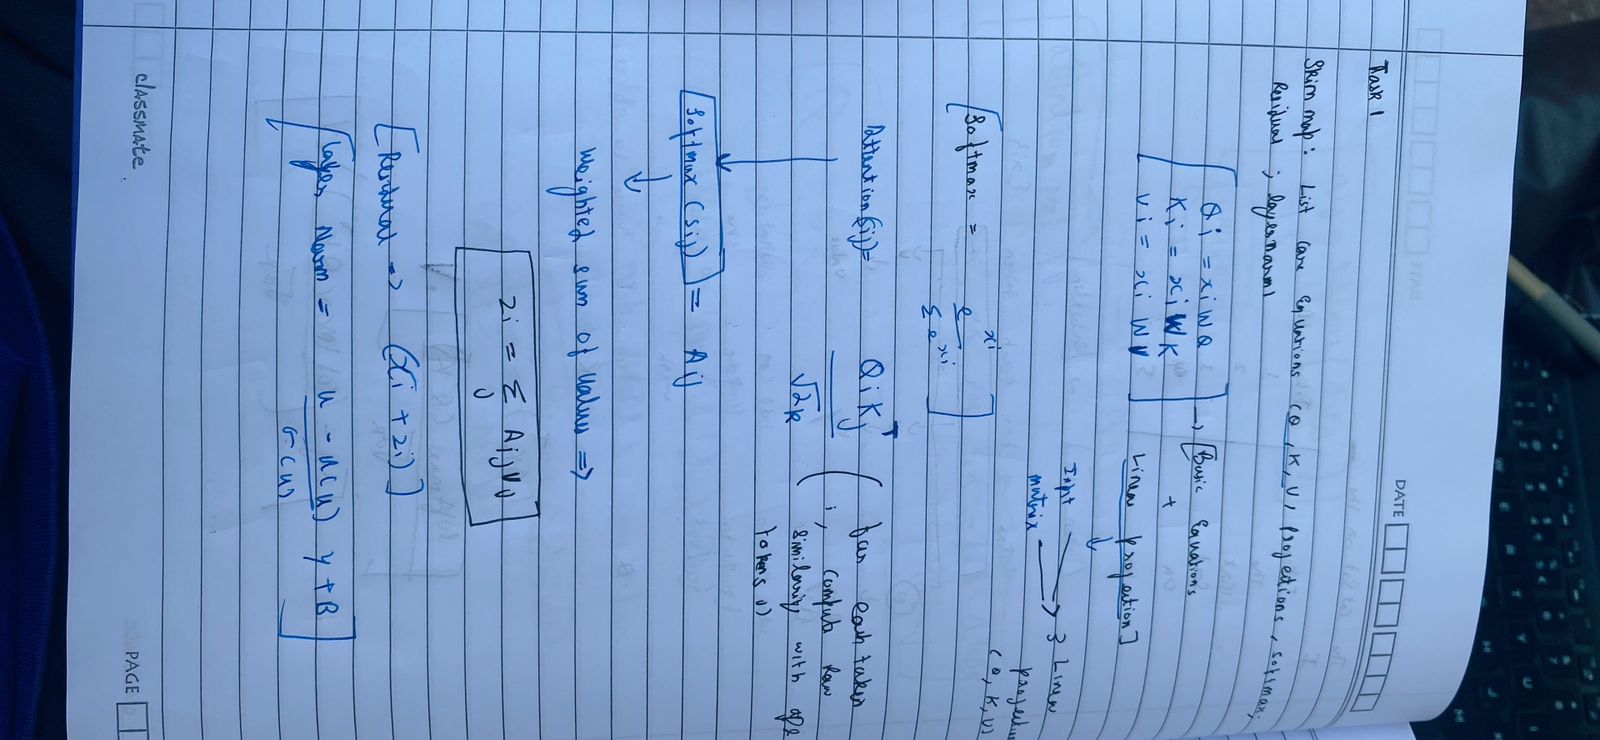 DATE
Task 1
Skim map: List core equations (Q, K, V, projections, softmax,
Residual ; layernorm)
Qi = xiWQ
Ki = xiWK
Vi = xiWV
→ [Basic Equations
+
Linear projection]
Input
matrix → 3 Linear
(Q, K, V)
[Softmax = e^xi / Σe^xi]
Attention(Sij) = QiKj^T / √2k
(for each token
i, compute Raw
similarity with
tokens j)
Softmax(Sij) = Aij
Weighted sum of values ⇒
Zi = Σj AijVj
[Residual ⇒ (xi + zi)]
[Layer Norm = u - u(u) / σ(u) γ + B]
classmate
PAGE